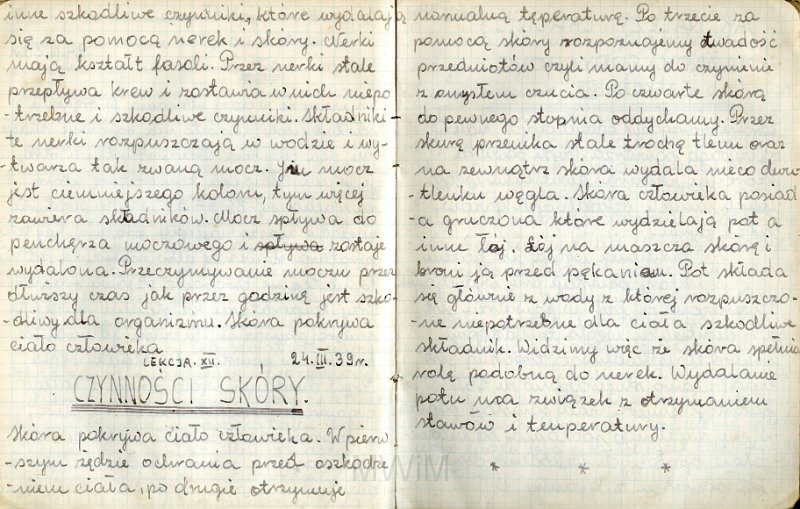 inne szkodliwe czynniki, które wydalają
się za pomocą nerek i skóry. Nerki
mają kształt fasoli. Przez nerki stale
przepływa krew i zostawia w nich niepo
-trzebne i szkodliwe czynniki. Składniki
te nerki rozpuszczają w wodzie i wy-
-twarza tak zwaną mocz. Im mocz
jest ciemniejszego koloru, tym więcej
zawiera składników. Mocz spływa do
pencherza moczowego i spływa zostaje
wydalona. Przeczymywanie moczu przez
dłuższy czas jak przez godzinę jest szko-
-dliwy dla organizmu. Skóra pokrywa
ciało człowieka
LEKCJA. XII. 24. III. 39 r.
CZYNNOŚCI SKÓRY.
Skóra pokrywa ciało człowieka. W pierw
-szym rzędzie ochrania przed oszkodze
-niem ciała, po drugie otrzymuje
normalną temperaturę. Po trzecie za
pomocą skóry rozpoznajemy twadość
przedmiotów czyli mamy do czynienie
z zmysłem czucia. Po czwarte skórą
do pewnego stopnia oddychamy. Przez
skurę przenika stale trochę tlenu oraz
na zewnątrz skóra wydala nieco dwu-
-tlenku węgla. Skóra człowieka posiad
-a gruczona które wydzielają pot a
inne łoj. Łój na maszcza skórę i
broni ją przed pękaniem. Pot składa
się głównie z wody z której rozpuszczo-
-ne niepotrzebne dla ciała szkodliwe
składnik. Widzimy więc że skóra spełnia
rolę podobną do nerek. Wydalanie
potu ma związek z otrzymaniem
stawów i temperatury.
* * *
MWiM